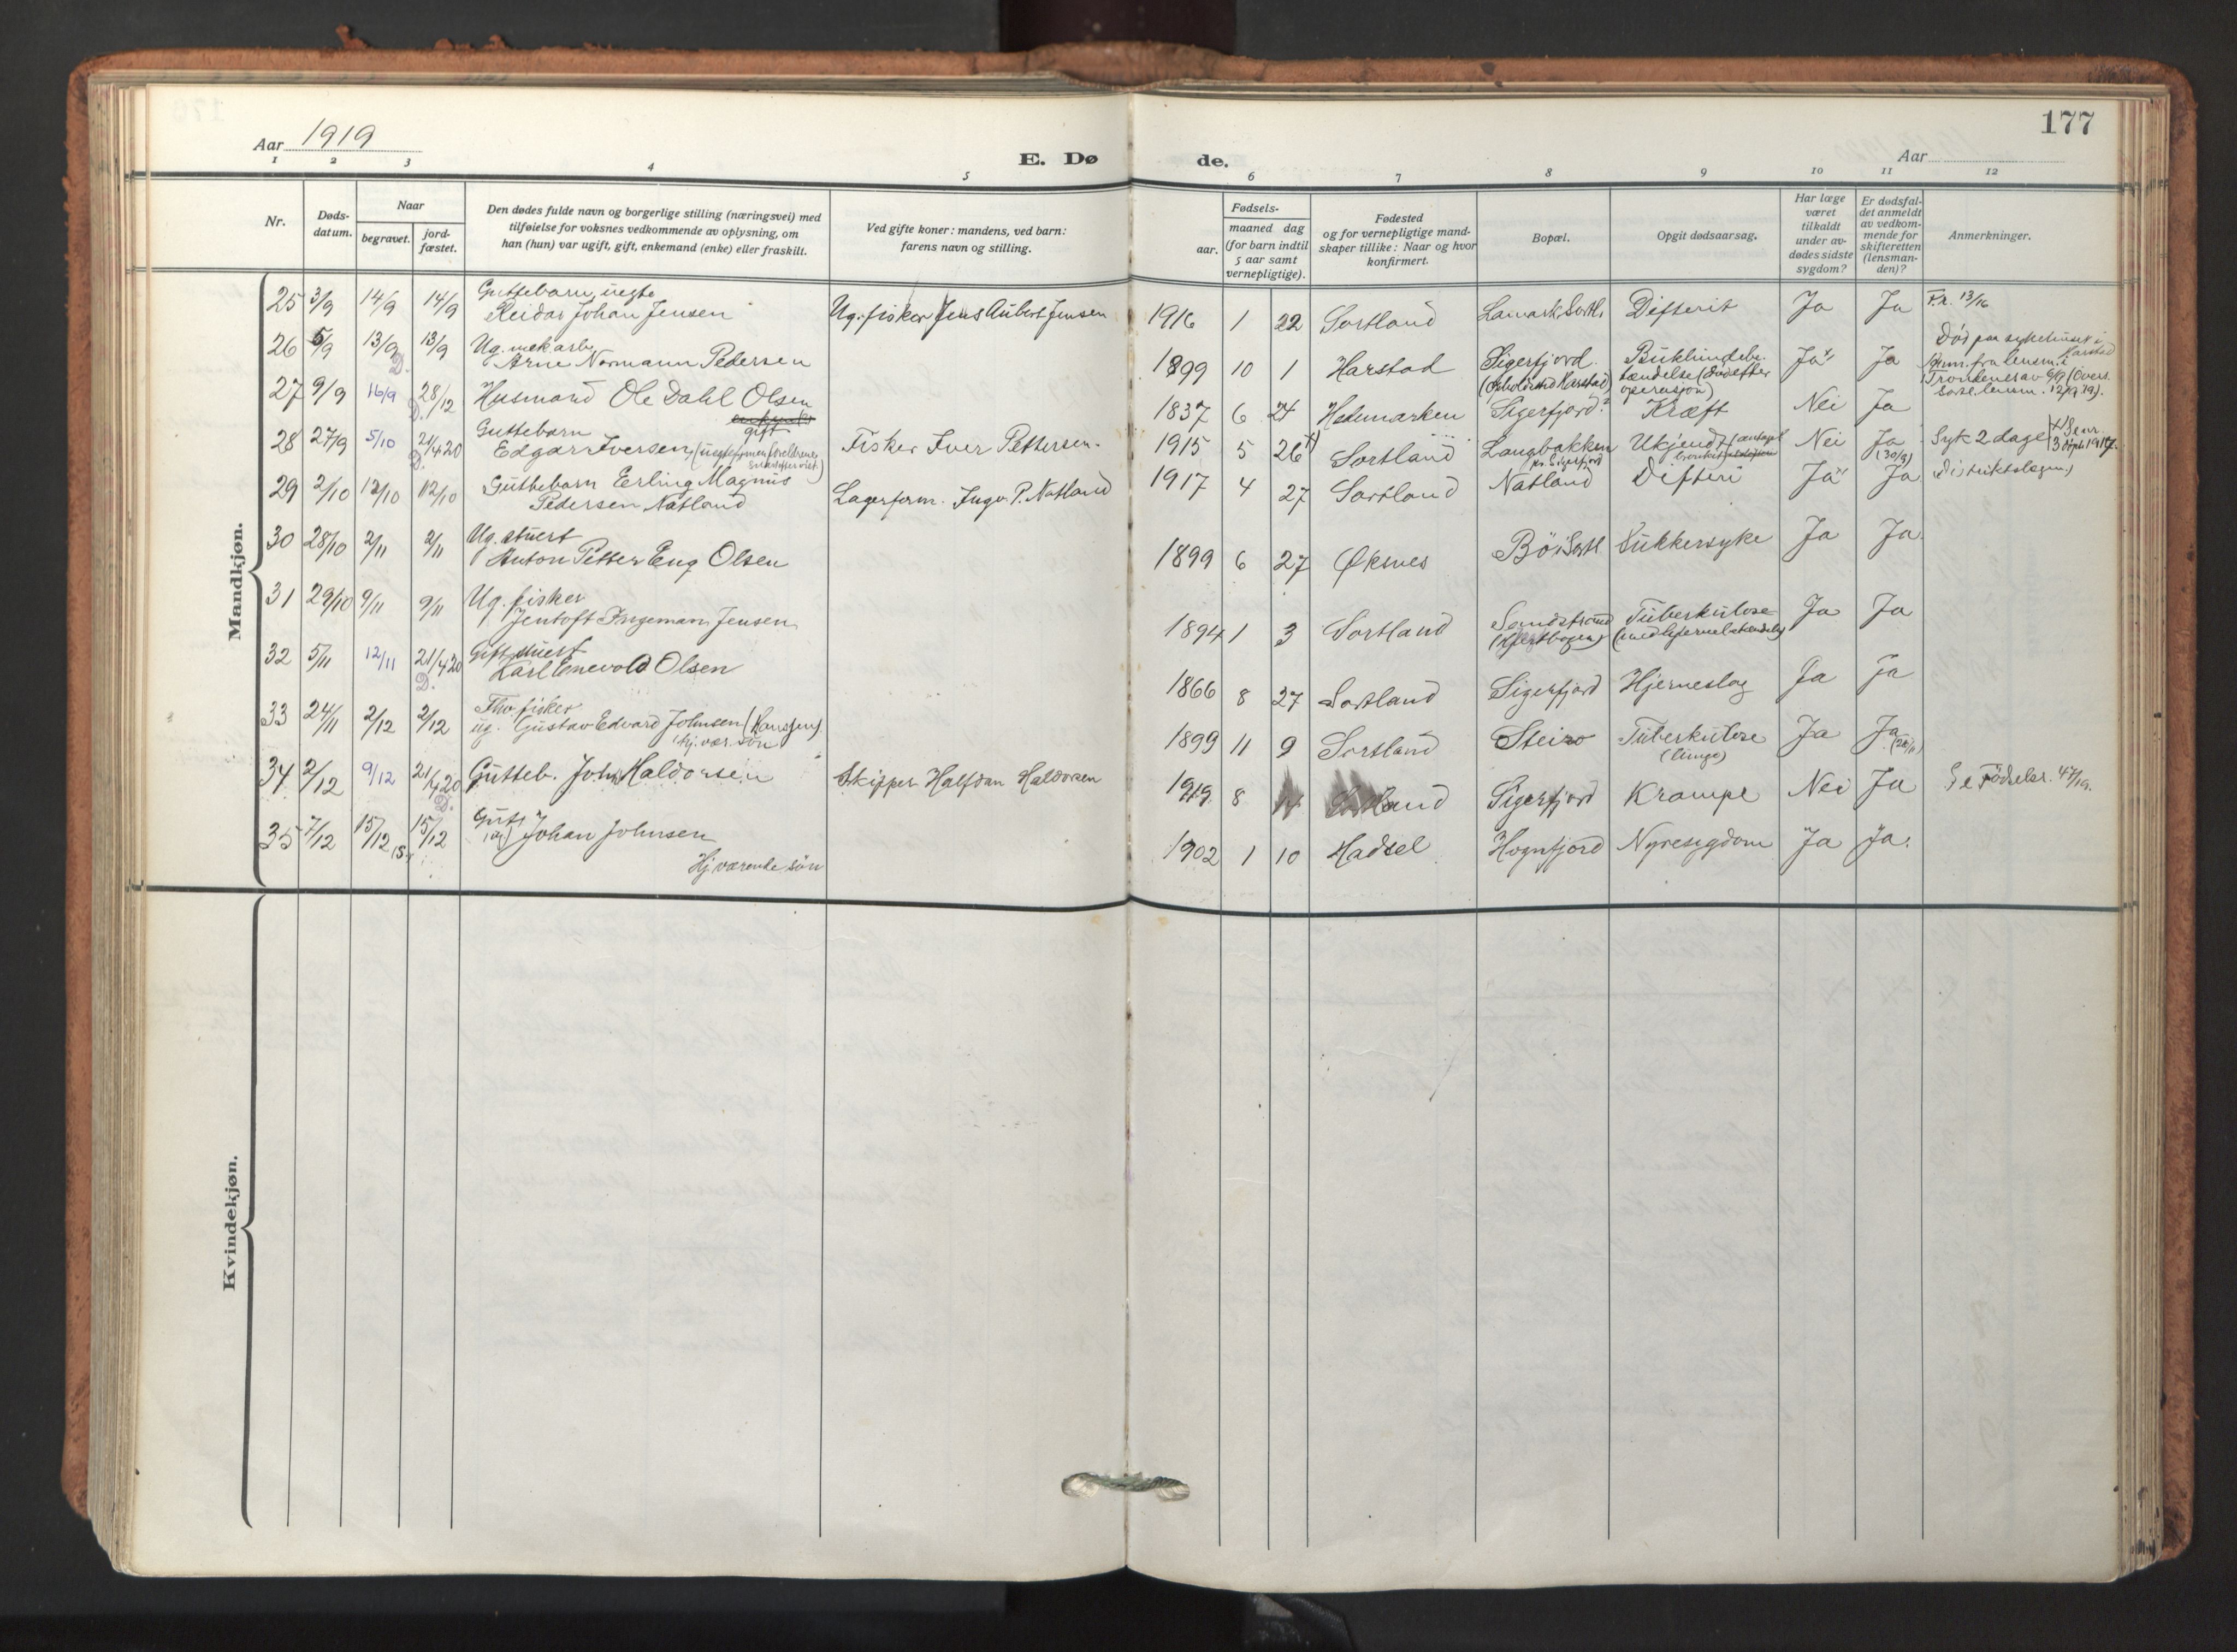 Aar 1919
E. Dø
de.
177
Aar
1 2 3 4 5 6 7 8 9 10 11 12
Nr.
Døds-
datum.
Naar
begravet.
jord-
fæstet.
Den dødes fulde navn og borgerlige stilling (næringsvei) med
tilføielse for voksnes vedkommende av oplysning, om
han (hun) var ugift, gift, enkemand (enke) eller fraskilt.
Ved gifte koner: mandens, ved barn:
farens navn og stilling.
Fødsels-
aar.
maaned dag
(for barn indtil
5 aar samt
vernepligtige).
Fødested
og for vernepligtige mand-
skaper tillike: Naar og hvor
konfirmert.
Bopæl.
Opgit dødsaarsag.
Har læge
været
tilkaldt
under av-
dødes sidste
sygdom?
Er dødsfal-
det anmeldt
av vedkom-
mende for
skifteretten
(lensman-
den)?
Anmerkninger.
Mandkjøn.
25 3/9 14/9 14/9 Guttebarn, uegte
Reidar Johan Jensen
Ug. fisker Jens Aubert Jensen
1916 1 22 Sortland Lamark, Sortl. Difterit Ja Ja F.r. 13/16
26 5/9 13/9 13/9 Ug. mek. arb.
D. Arne Normann Pedersen
1899 10 1 Harstad Sigerfjord Bukhindebe-
tændelse (död efter
operasjon)
Ja Ja Död paa sykehuset i
Harstad
Trondenes av 6/9
27 9/9 16/9 28/12 Husmand Ole Dahl Olsen
D.
gift
1837 6 24 Hedemarken Sigerfjord Kræft Nei Ja
28 27/9 5/10 21/4 20 Guttebarn
D. Edgar Iversen
Fisker Iver Pettersen.
1915 5 26 Sortland Langbakken Ukjendt Nei Ja Syk 2 dage
(30/9)
pr. Sigerfjord
29 2/10 12/10 12/10 Guttebarn Erling Magnus
Pedersen Natland
Lagerform. Ingv. P. Natland
1917 4 27 Sortland Natland Difteri Ja Ja
30 28/10 2/11 2/11 Ug. stuert
Anton Petter Eng Olsen
1899 6 27 Øksnes Bö i Sortl. Sukkersyke Ja Ja
31 29/10 9/11 9/11 Ug. fisker
Jentoft Ingemann Jensen
1894 1 3 Sortland Sandstrand Tuberkulose Ja Ja
32 5/11 12/11 21/4 20 Gift stuert
D. Karl Enevold Olsen
1866 8 27 Sortland Sigerfjord Hjerneslag Ja Ja
33 24/11 2/12 2/12 fisker
ug. Gustav Edvard Johnsen (Hanssen)
hj. vær. sön
1899 11 9 Sortland Steiro Tuberkulose Ja Ja
(lunge)
34 2/12 9/12 21/4 20 Gutteb. John Haldorsen
D.
Skipper Halfdan Haldorsen
1919 8 Sortland Sigerfjord Krampe Nei Ja Se Födselsr. 47/19.
35 7/12 15/12 15/12 Gutt
(ug.) Johan Johnsen
Hj. værende sön
1902 1 10 Hadsel Hognfjord Nyresygdom Ja Ja.
Kvindekjøn.